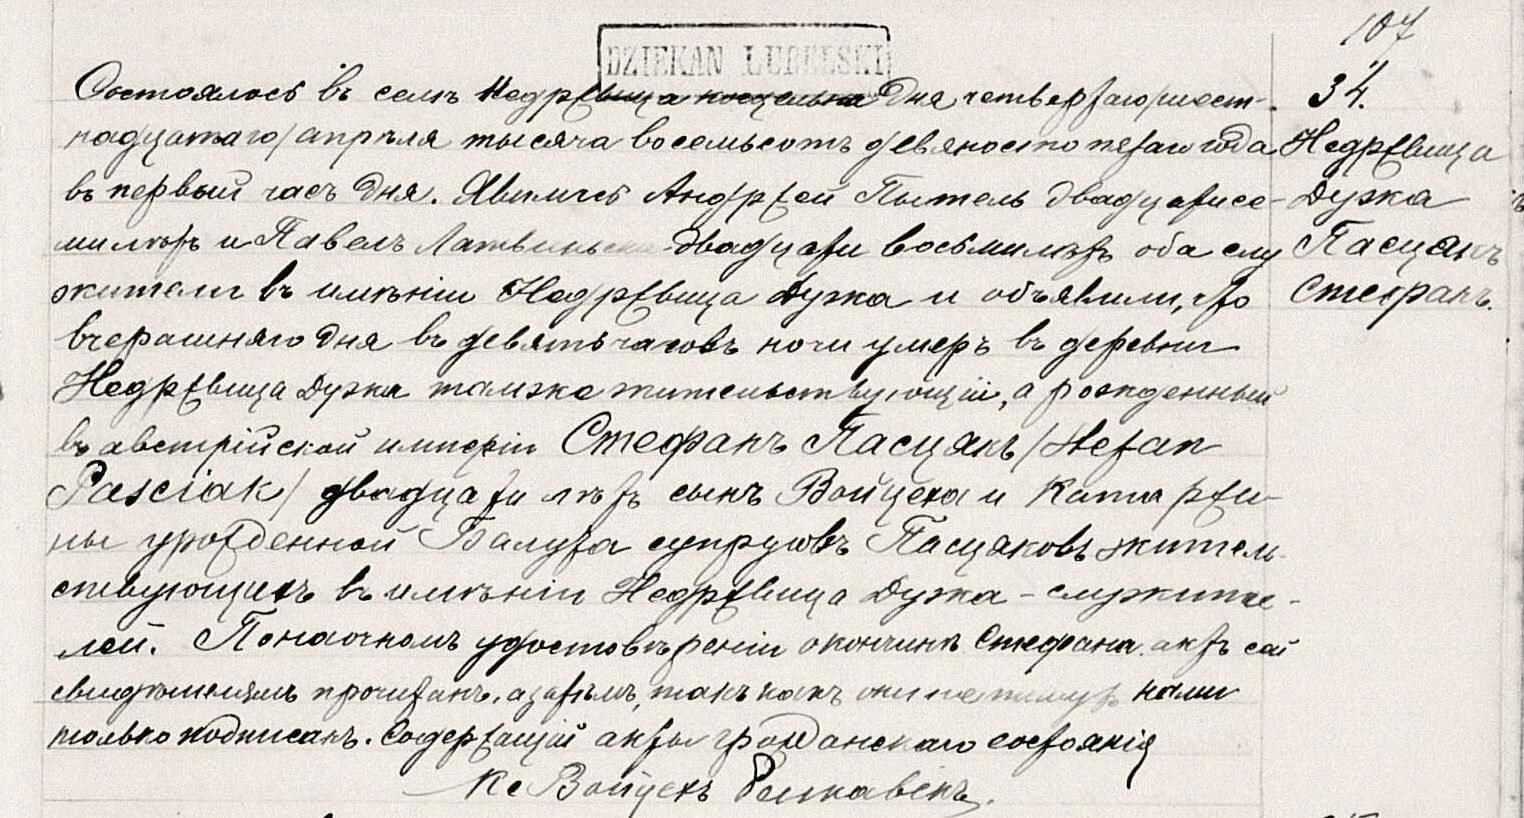 107
DZIEKAN LUBELSKI
Состоялось въ селѣ Недржвица костельна Дня четвертаго /шест-
надцатаго/ апрѣля тысяча восемьсотъ девяносто пятаго года
въ первый часъ дня. Явились Андржей Пытель двадцатисе-
милѣтъ и Павелъ двадцати восьмилѣтъ оба слу
жители въ имѣніи Недржвица Дужа и объявили, что
вчерашняго дня въ девять часовъ ночи умеръ въ деревни
Недржвица Дужа тамже жительствующій, а рожденный
въ австрійской имперіи Стефанъ Пасцякъ /Stefan
Pasciak/ двадцати лѣтъ сынъ Войцеха и Катаржи-
ны урожденной Балута супруговъ Пасцяковъ житель
ствующихъ въ имѣніи Недржвица Дужа - служите-
лей. По наочномъ удостовѣреніи о кончинѣ Стефана актъ сей
свидѣтелямъ прочитанъ, а затѣмъ, такъ какъ они не пишутъ нами
только подписанъ. Содержащій акты гражданскаго состоянія
Кс Войцехъ
34.
Недржвица
Дужа
Пасцякъ
Стефанъ.